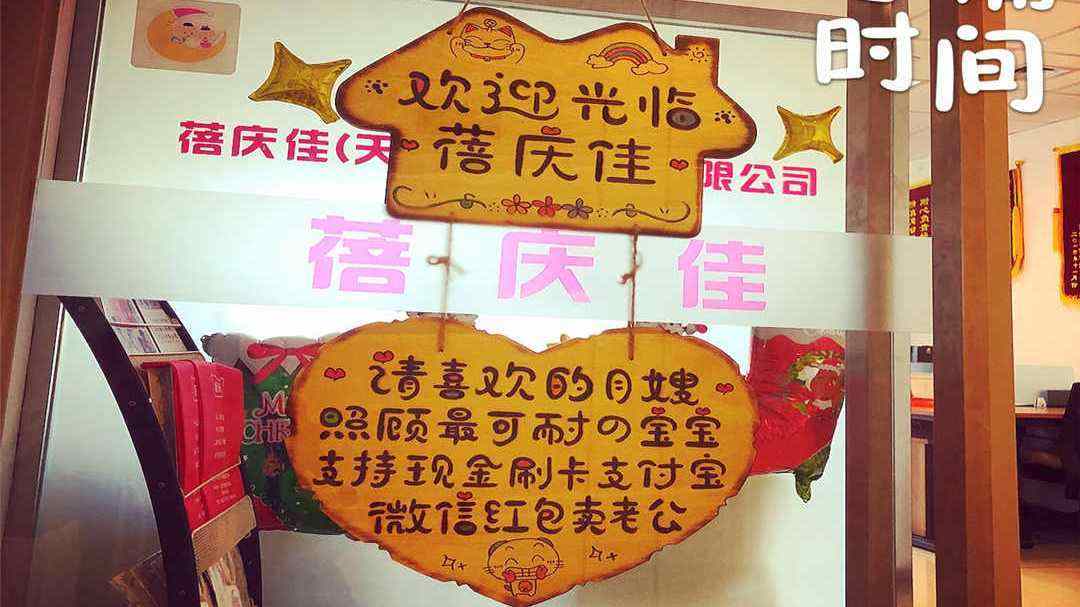 时间
欢迎光临
蓓庆佳
蓓庆佳(天
限公司
蓓庆佳
请喜欢的月嫂
照顾最可耐の宝宝
支持现金刷卡支付宝
微信红包卖老公